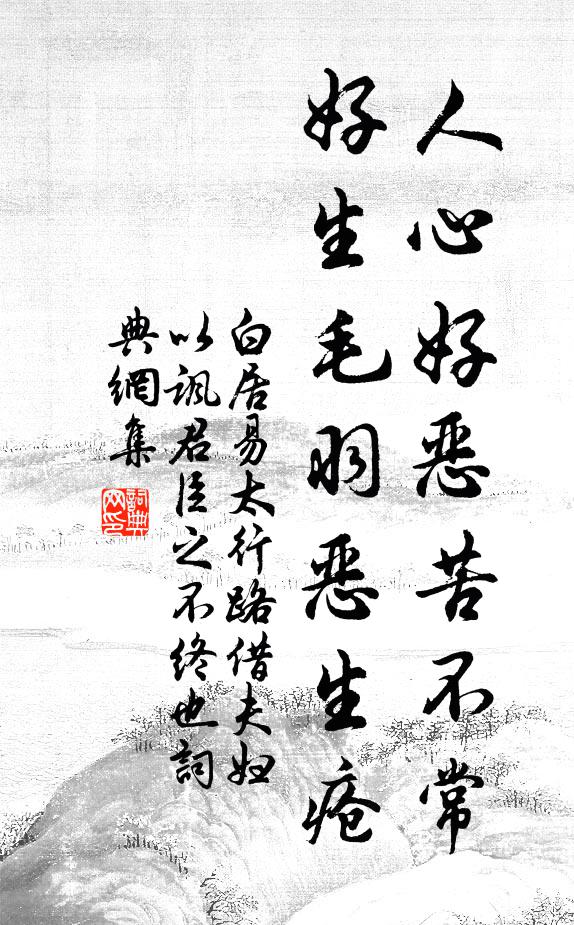 人心好恶苦不常
好生毛羽恶生疮
白居易太行路借夫妇
以讽君臣之不终也詞
典網集
詞典
网印